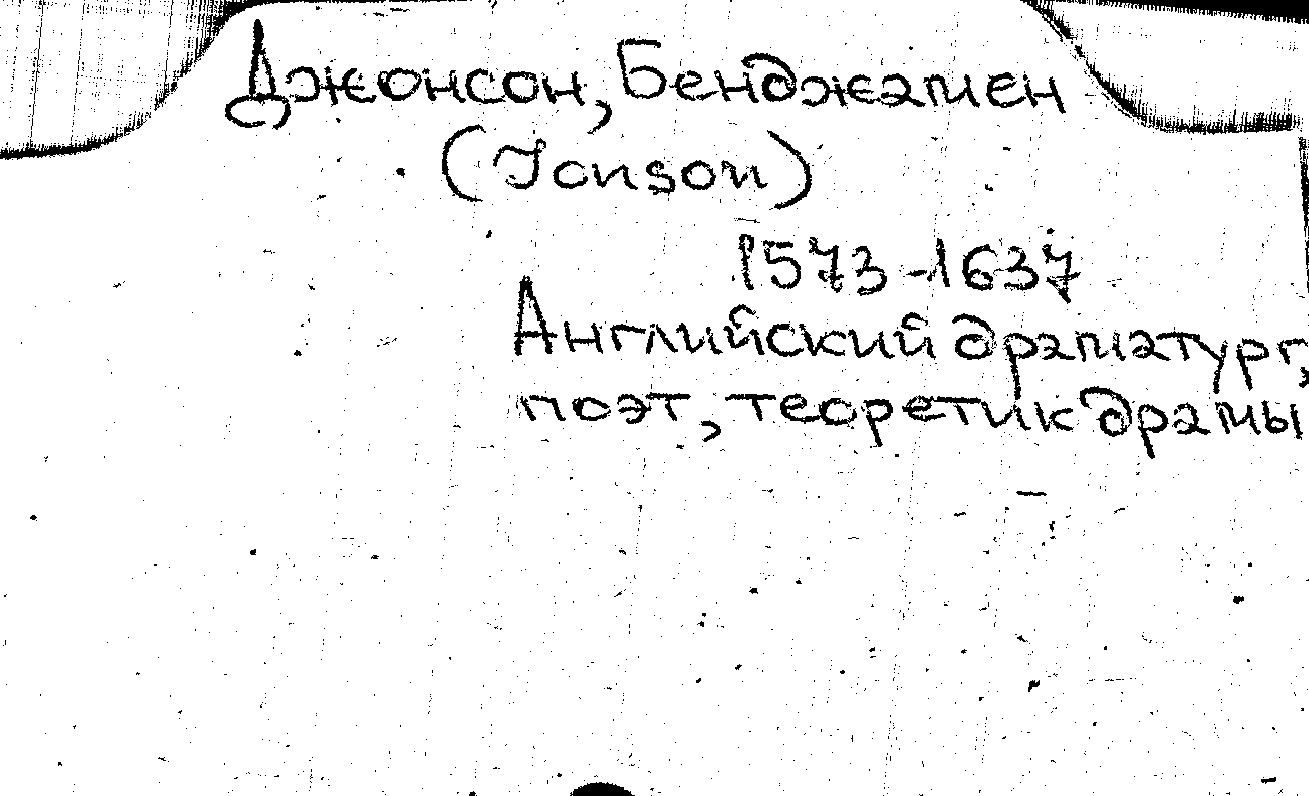 Джонсон, Бенджамен
(Jonson)
1573-1637
Английский драматург,
поэт, теоретик драмы